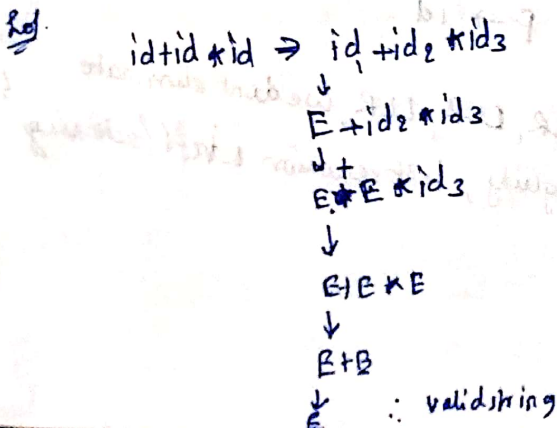 Sol.
id+id*id ⇒ id₁+id₂*id₃
↓
E+id₂*id₃
↓+
E*E*id₃
↓
E+E*E
↓
E+B
↓
E ∴ valid string